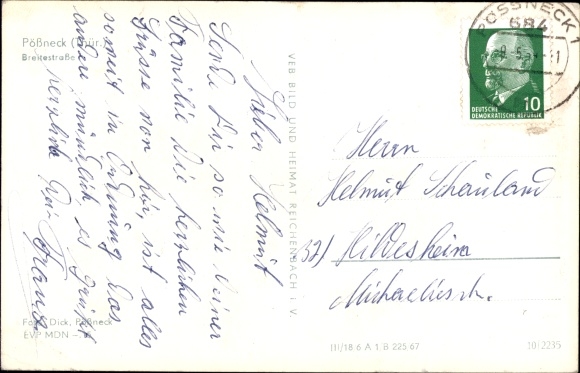 Pößneck (Thür.)
Breitestraße
Lieber Helmut
Sende Dir so wie Deiner
Familie die herzlichen
Grüsse von hier, ist alles
somit in Ordnung das
andre mündlich, es grüßt
herzlich Dein
Foto: Dick, Pößneck
EVP MDN
VEB BILD UND HEIMAT REICHENBACH I. V.
PÖSSNECK 1
684
10
DEUTSCHE
DEMOKRATISCHE REPUBLIK
Herrn
Helmut Schauland
32) Hildesheim
Michaelisstr.
III/18.6 A 1 B 225 67
10/2235